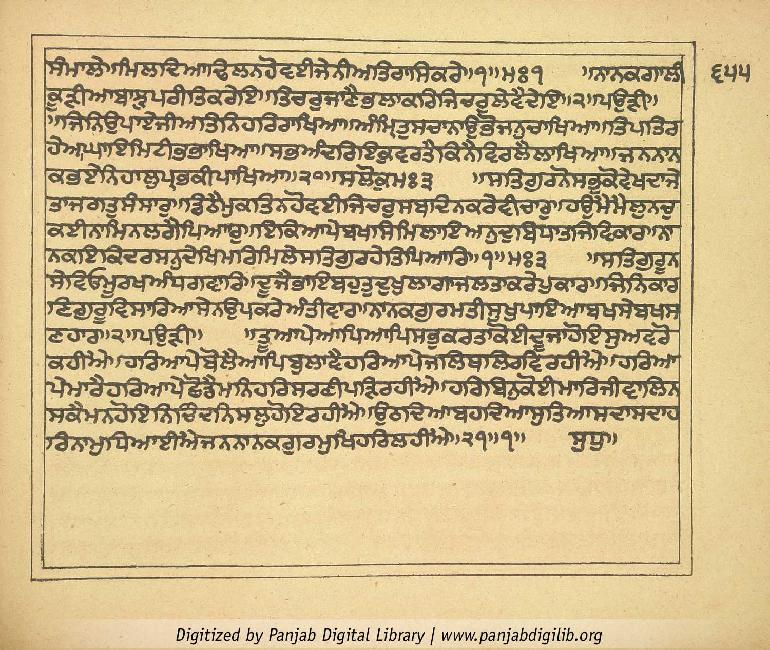 ਸੰਮਾਲੇ॥ਮਿਲਦਿਆਢਿਲਨਹੋਵਈਜੇਨੀਅਤਿਰਾਸਿਕਰੇ॥੧॥ਮਃ੧ ॥ਨਾਨਕਗਾਲੀ ੬੫੫
ਕੂੜੀਆਬਾਝੁਪਰੀਤਿਕਰੇਇ॥ਤਿਚਰੁਜਾਣੈਭਲਾਕਰਿਜਿਚਰੁਲੇਵੈਦੇਇ॥੨॥ਪਉੜੀ॥
॥ਜਿਨਿਉਪਾਏਜੀਅਤਿਨਿਹਰਿਰਾਖਿਆ॥ਅੰਮ੍ਰਿਤੁਸਚਾਨਾਉਭੋਜਨੁਚਾਖਿਆ॥ਤਿਪਤਿਰ
ਹੇਆਘਾਇਮਿਟੀਭਭਾਖਿਆ॥ਸਭਅੰਦਰਿਇਕੁਵਰਤੈਕਿਨੈਵਿਰਲੈਲਾਖਿਆ॥ਜਨਨਾਨ
ਕਭਏਨਿਹਾਲੁਪ੍ਰਭਕੀਪਾਖਿਆ॥੨੦॥ਸਲੋਕੁਮਃ੩ ॥ਸਤਿਗੁਰਨੋਸਭੁਕੋਵੇਖਦਾਜੇ
ਤਾਜਗਤੁਸੰਸਾਰੁ॥ਡਿਠੈਮੁਕਤਿਨਹੋਵਈਜਿਚਰੁਸਬਦਿਨਕਰੇਵੀਚਾਰੁ॥ਹਉਮੈਮੈਲੁਨਚੁ
ਕਈਨਾਮਿਨਲਗੈਪਿਆਰੁ॥ਇਕਿਆਪੇਬਖਸਿਮਿਲਾਇਅਨੁਦੁਬਿਧਾਤਜਿਵਿਕਾਰ॥ਨਾ
ਨਕਇਕਿਦਰਸਨੁਦੇਖਿਮਰਿਮਿਲੇਸਤਿਗੁਰਹੇਤਿਪਿਆਰਿ॥੧॥ਮਃ੩ ॥ਸਤਿਗੁਰੂਨ
ਸੇਵਿਓਮੂਰਖਅੰਧਗਵਾਰਿ॥ਦੂਜੈਭਾਇਬਹੁਤੁਦੁਖੁਲਾਗਾਜਲਤਾਕਰੇਪੁਕਾਰ॥ਜਿਨਿਕਾਰ
ਣਿਗੁਰੂਵਿਸਾਰਿਆਸੇਨਉਪਕਰੇਅੰਤੀਵਾਰ॥ਨਾਨਕਗੁਰਮਤੀਸੁਖੁਪਾਇਆਬਖਸੇਬਖਸ
ਣਹਾਰ॥੨॥ਪਉੜੀ॥ ॥ਤੂਆਪੇਆਪਿਆਪਿਸਭੁਕਰਤਾਕੋਈਦੂਜਾਹੋਇਸੁਅਵਰੋ
ਕਹੀਐ॥ਹਰਿਆਪੇਬੋਲੈਆਪਿਬੁਲਾਵੈਹਰਿਆਪੇਜਲਿਥਲਿਰਵਿਰਹੀਐ॥ਹਰਿਆ
ਪੇਮਾਰੈਹਰਿਆਪੇਛੋਡੈਮਨਹਰਿਸਰਣੀਪੜਿਰਹੀਐ॥ਹਰਿਬਿਨੁਕੋਈਮਾਰਿਜੀਵਾਲਿਨ
ਸਕੈਮਨਹੋਇਨਿਚਿੰਦਨਿਸਲੁਹੋਇਰਹੀਐ॥ਉਠਦਿਆਬਹਦਿਆਸੁਤਿਆਸਦਾਸਦਾਹ
ਰਿਨਾਮੁਧਿਆਈਐਜਨਨਾਨਕਗੁਰਮੁਖਿਹਰਿਲਹੀਐ॥੨੧॥੧॥ ਸੁਧੁ॥
Digitized by Panjab Digital Library | www.panjabdigilib.org